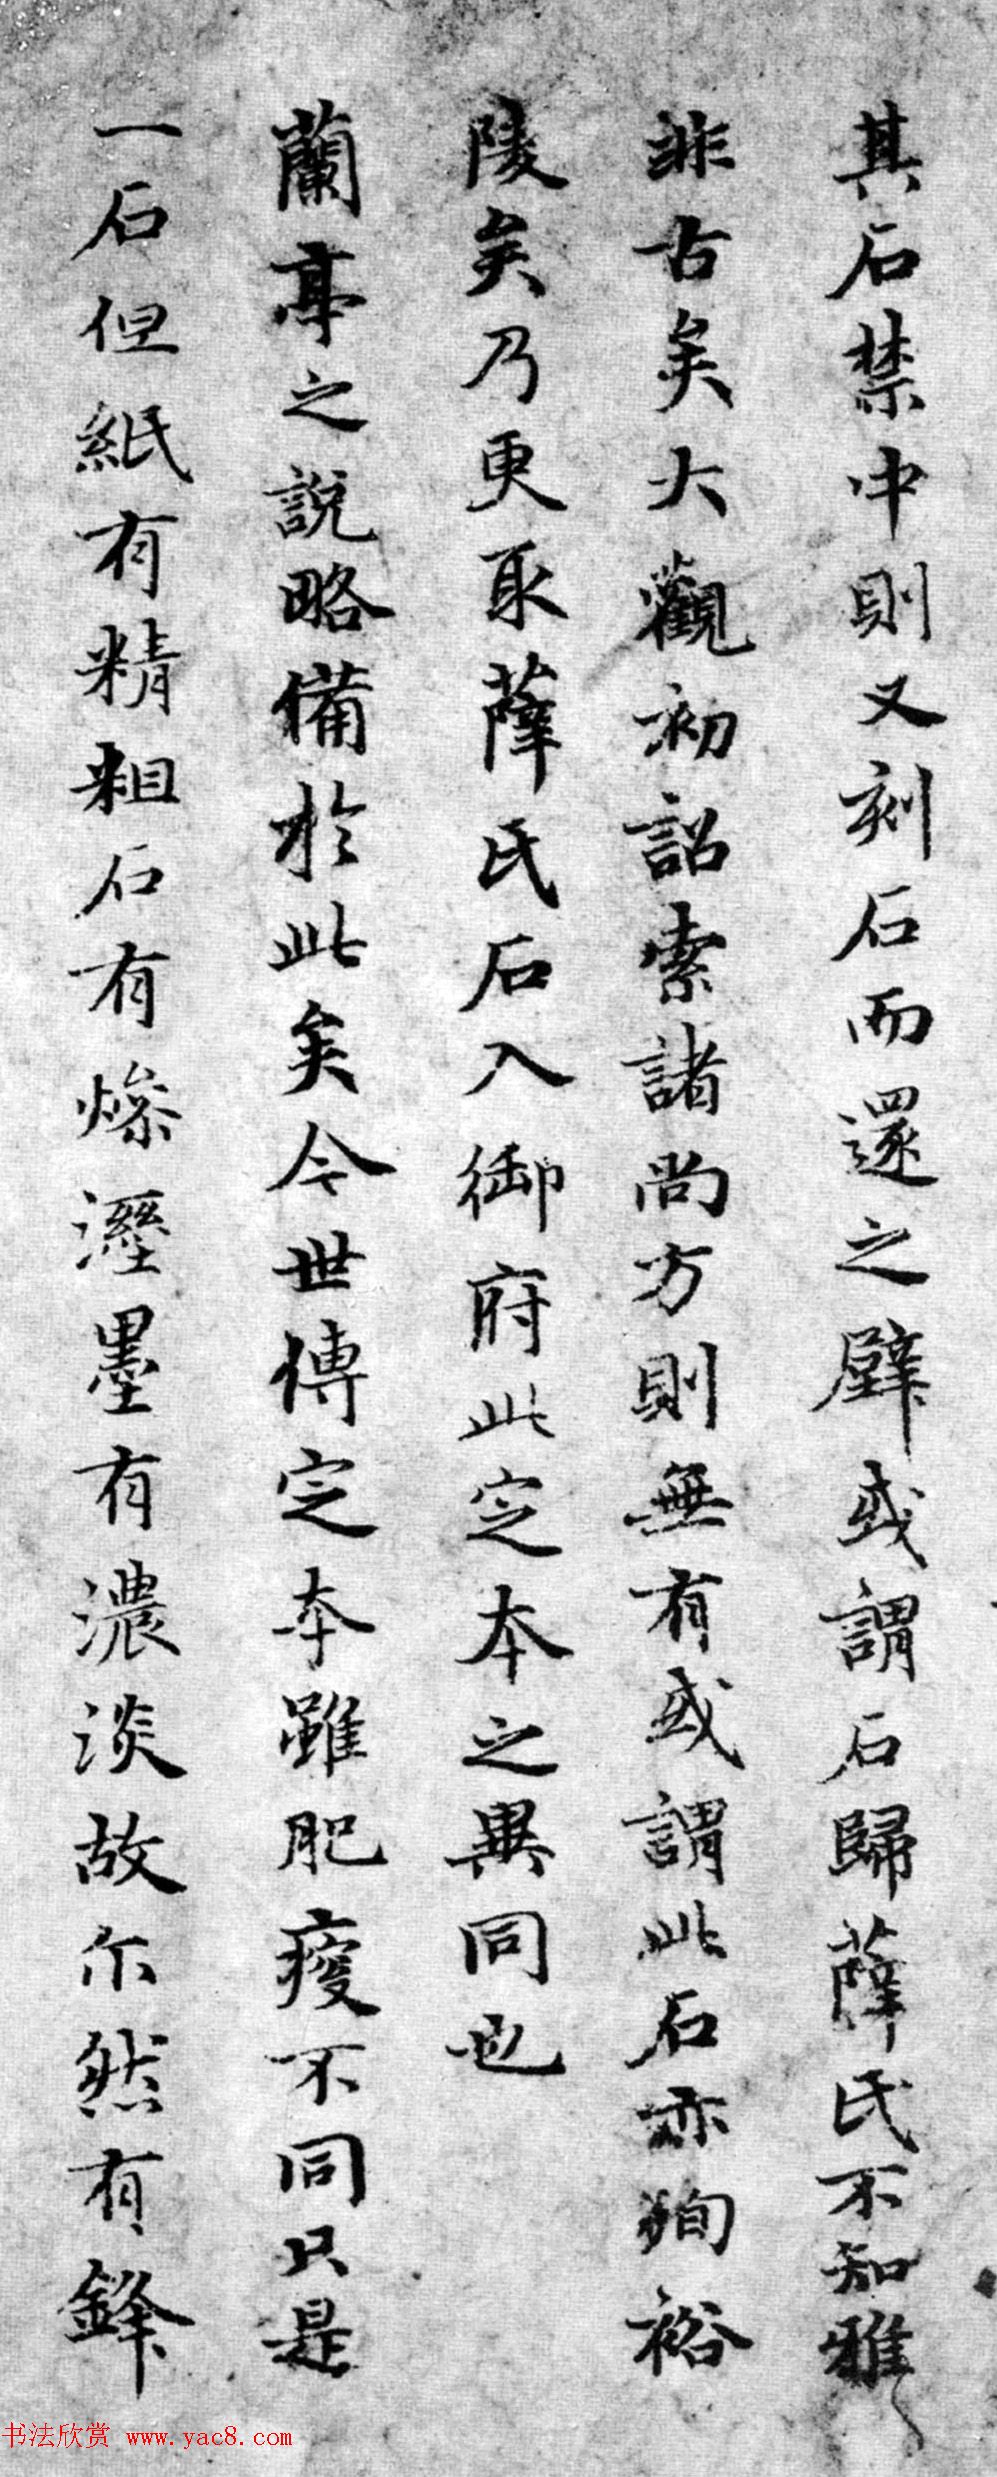 其石禁中則又刻石而還之壁或謂石歸薛氏不知雅
非古矣大觀初詔索諸尚方則無有或謂此石亦殉裕
陵矣乃更取薛氏石入御府此定本之異同也
蘭亭之說略備於此矣今世傳定本雖肥瘦不同只是
一石但紙有精粗石有燥溼墨有濃淡故尒然有鋒
书法欣赏 www.yac8.com